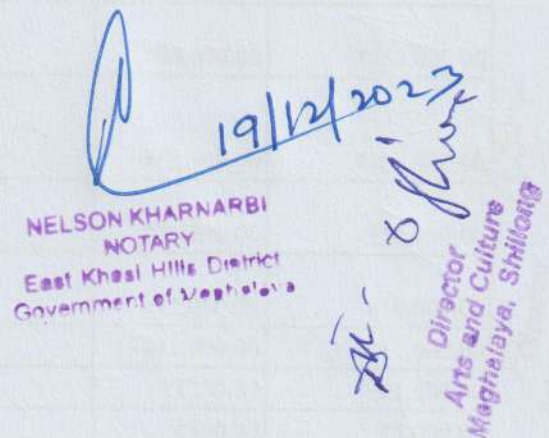 19/12/2023
NELSON KHARNARBI
NOTARY
East Khasi Hills District
Government of Meghalaya
Director
Arts and Culture
Meghalaya, Shillong